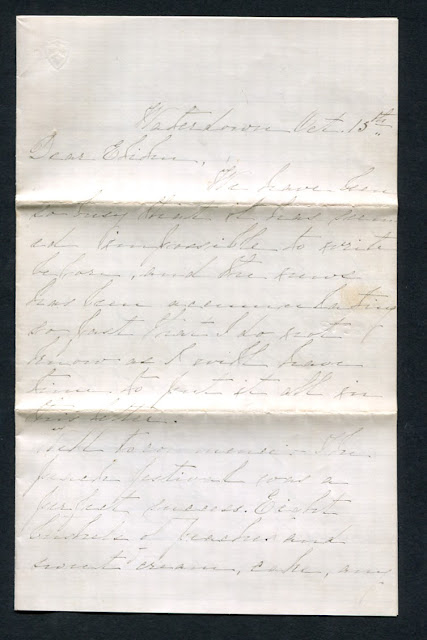 Waterdown Oct 13th
Dear
We have been
so busy that it has seem
ed impossible to write
before, and the news
has been accummulating
so fast that I do not
know as I will have
time to put it all in
this letter.
Well to commence. The
peach festival was a
perfect success. Eight
bushels of peaches and
sweet cream, cake, any